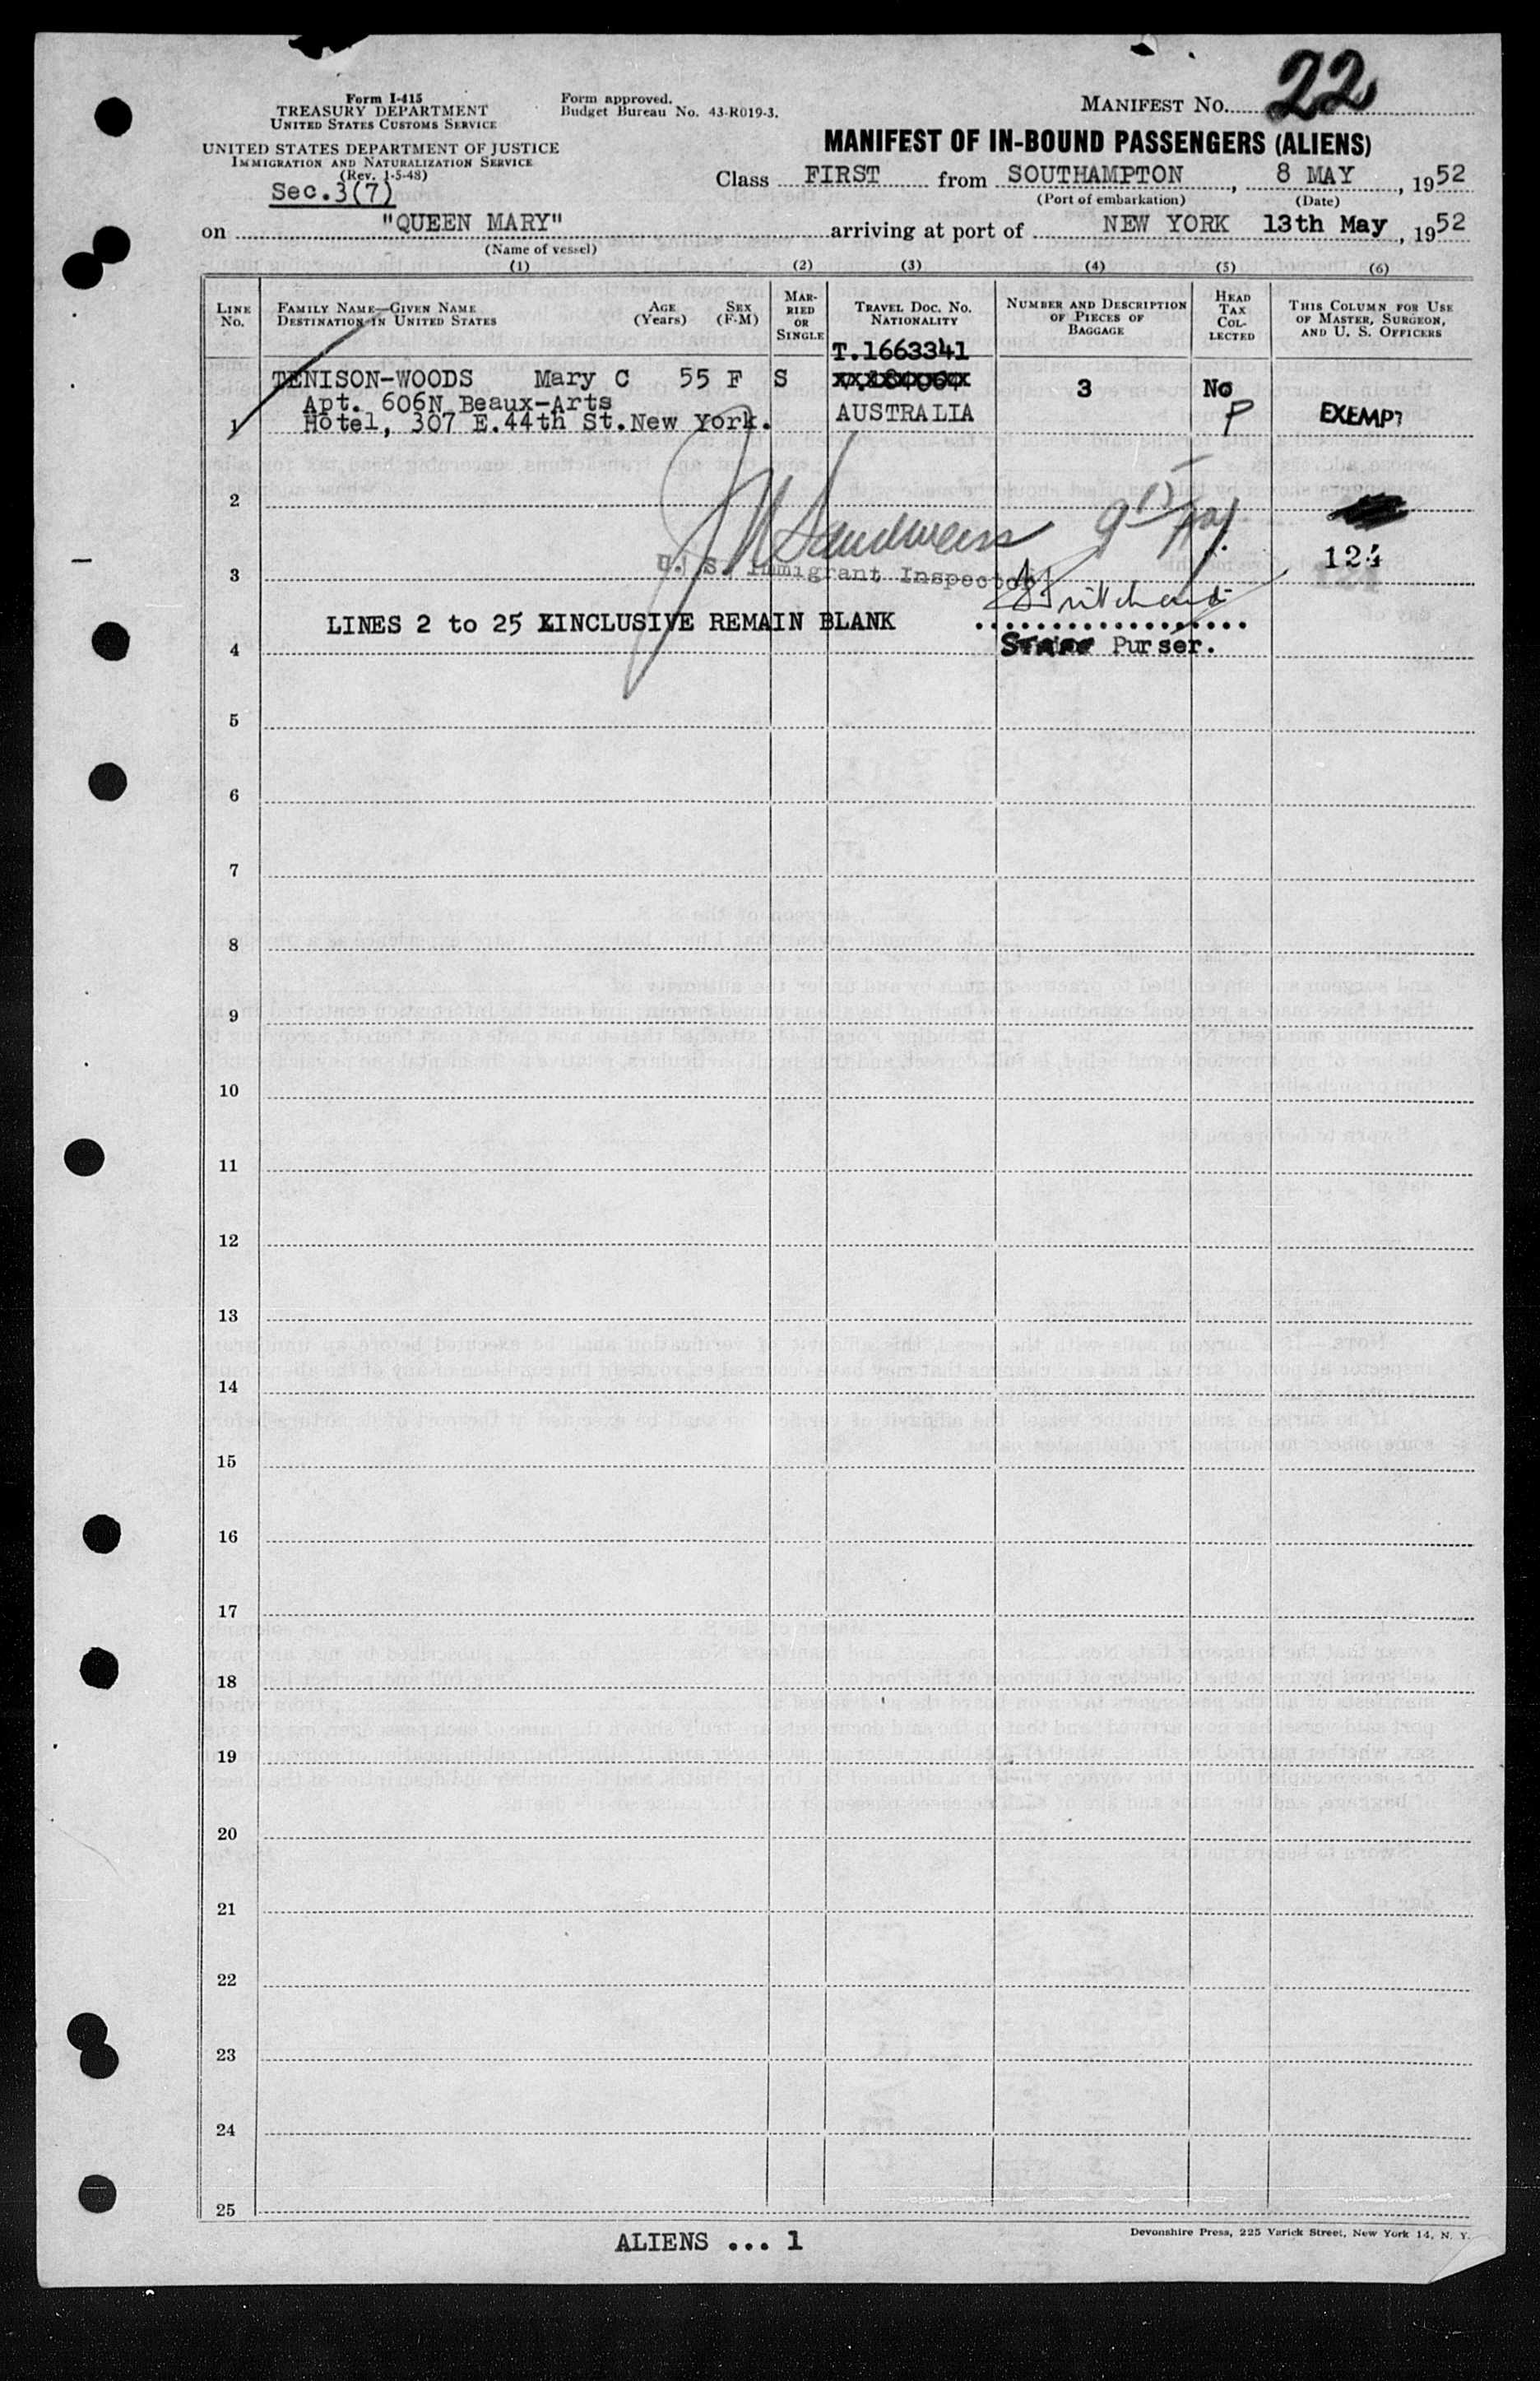 Form I-415
TREASURY DEPARTMENT
UNITED STATES CUSTOMS SERVICE
UNITED STATES DEPARTMENT OF JUSTICE
IMMIGRATION AND NATURALIZATION SERVICE
(Rev. 1-5-48)
Sec.3(7)
Form approved.
Budget Bureau No. 43-R019-3.
MANIFEST NO. 22
MANIFEST OF IN-BOUND PASSENGERS (ALIENS)
Class FIRST from SOUTHAMPTON, 8 MAY, 1952
(Port of embarkation) (Date)
on "QUEEN MARY" arriving at port of NEW YORK 13th May, 1952
(Name of vessel)
(1) (2) (3) (4) (5) (6)
LINE NO.
FAMILY NAME—GIVEN NAME
DESTINATION IN UNITED STATES
AGE (Years)
SEX (F-M)
MARRIED OR SINGLE
TRAVEL DOC. NO. NATIONALITY
NUMBER AND DESCRIPTION OF PIECES OF BAGGAGE
HEAD TAX COLLECTED
THIS COLUMN FOR USE OF MASTER, SURGEON, AND U. S. OFFICERS
T.1663341
TENISON-WOODS Mary C 55 F S 3 No
Apt. 606N Beaux-Arts
1 Hotel, 307 E.44th St.New York. AUSTRALIA P EXEMPT
2
Sandweiss
3 U. S. Immigrant Inspector 124
Pritchard
LINES 2 to 25 INCLUSIVE REMAIN BLANK
4 Staff Purser.
5
6
7
8
9
10
11
12
13
14
15
16
17
18
19
20
21
22
23
24
25
ALIENS ... 1
Devonshire Press, 225 Varick Street, New York 14, N. Y.